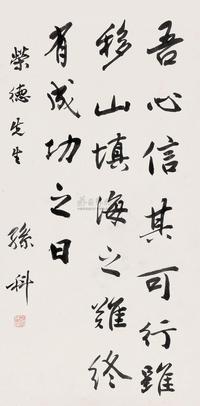 吾心信其可行雖
移山填海之難終
有成功之日
榮德先生
孫科